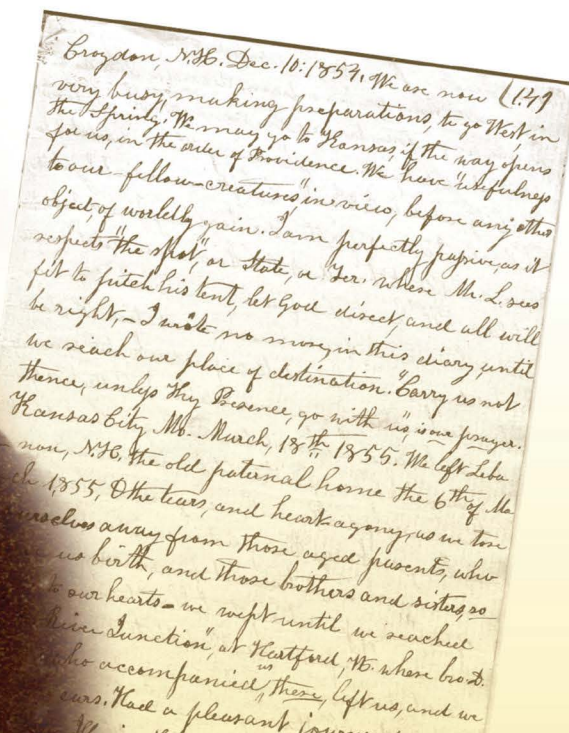 Croydon, N.H. Dec. 10. 1854. We are now (149
very busy, making preparations, to go West, in
the Spring. We may go to Kansas, if the way opens
for us, in the order of Providence. We have "usefulness
to our fellow-creatures" in view, before any other
object, of worldly gain. I am perfectly passive, as it
respects "the spot", or State, or Ter. where Mr. L. sees
fit to pitch his tent, let God direct, and all will
be right, - I write no more, in this diary, until
we reach our place of destination. "Carry us not
thence, unless Thy Presence, go with us", is our prayer.
Kansas City, Mo. March, 18th 1855. We left Leba
non, N.H. the old paternal home the 6th of Ma
ch 1855, O the tears, and heart agony, as we tore
ourselves away from those aged parents, who
us birth, and those brothers and sisters, so
to our hearts - we wept until we reached
River Junction", at Hartford, Vt. where bro. D.
who accompanied us there, left us, and we
cars. Had a pleasant